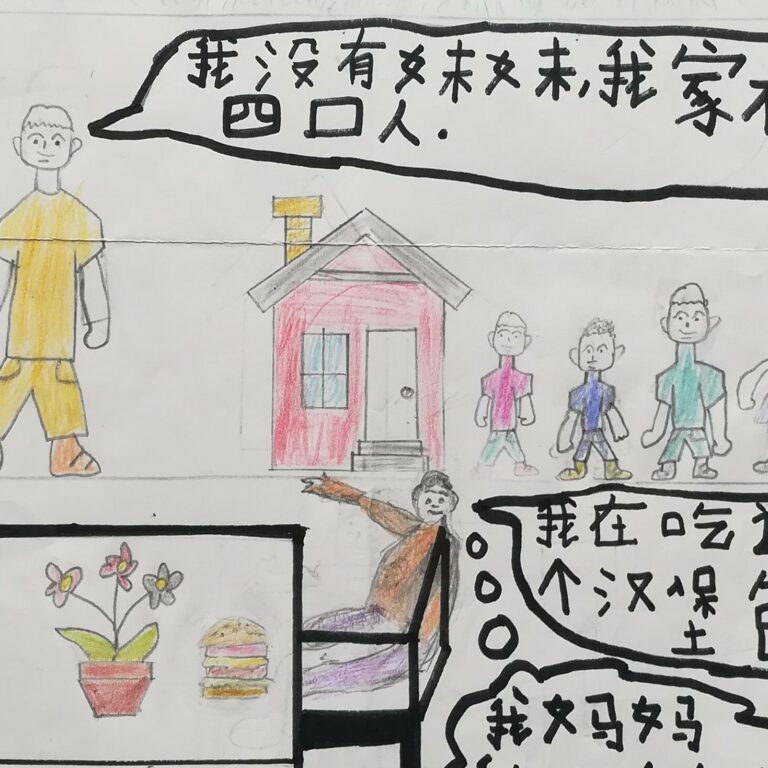 我没有妹妹,我家
四口人.
我在吃
个汉堡
我妈妈